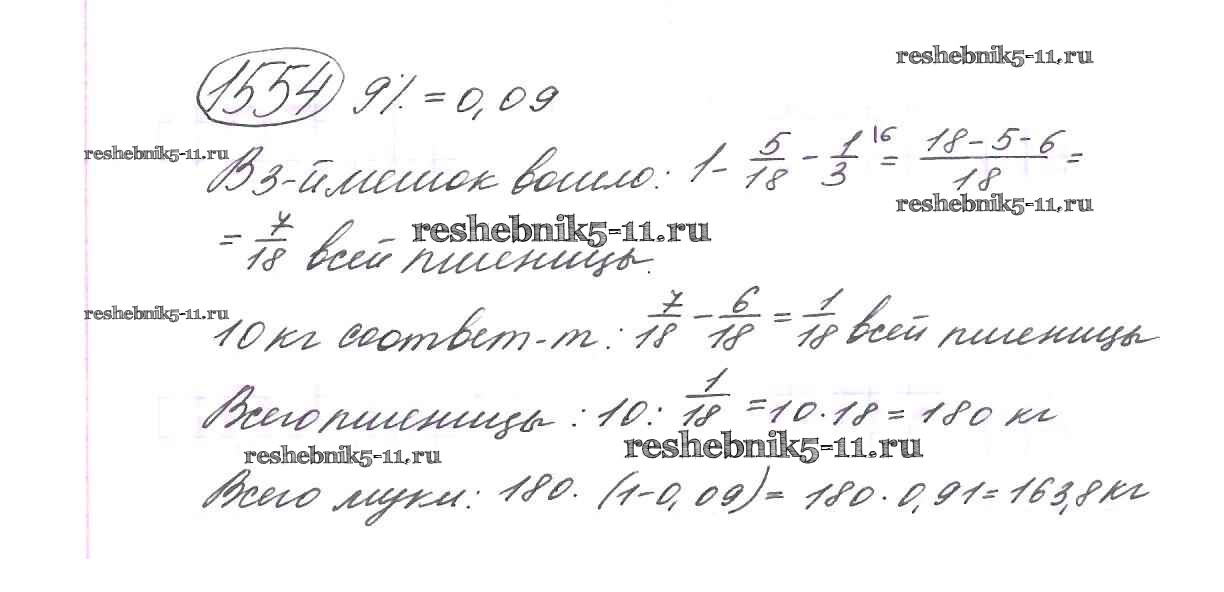 reshebnik5-11.ru
1554 9% = 0,09
reshebnik5-11.ru
В 3-й мешок вошло: 1 - 5/18 - 1/3 \6 = (18 - 5 - 6)/18 =
reshebnik5-11.ru
= 7/18 всей пшеницы.
reshebnik5-11.ru
reshebnik5-11.ru
10 кг соответ-т: 7/18 - 6/18 = 1/18 всей пшеницы
Всего пшеницы: 10 : 1/18 = 10 · 18 = 180 кг
reshebnik5-11.ru
reshebnik5-11.ru
Всего муки: 180 · (1 - 0,09) = 180 · 0,91 = 163,8 кг